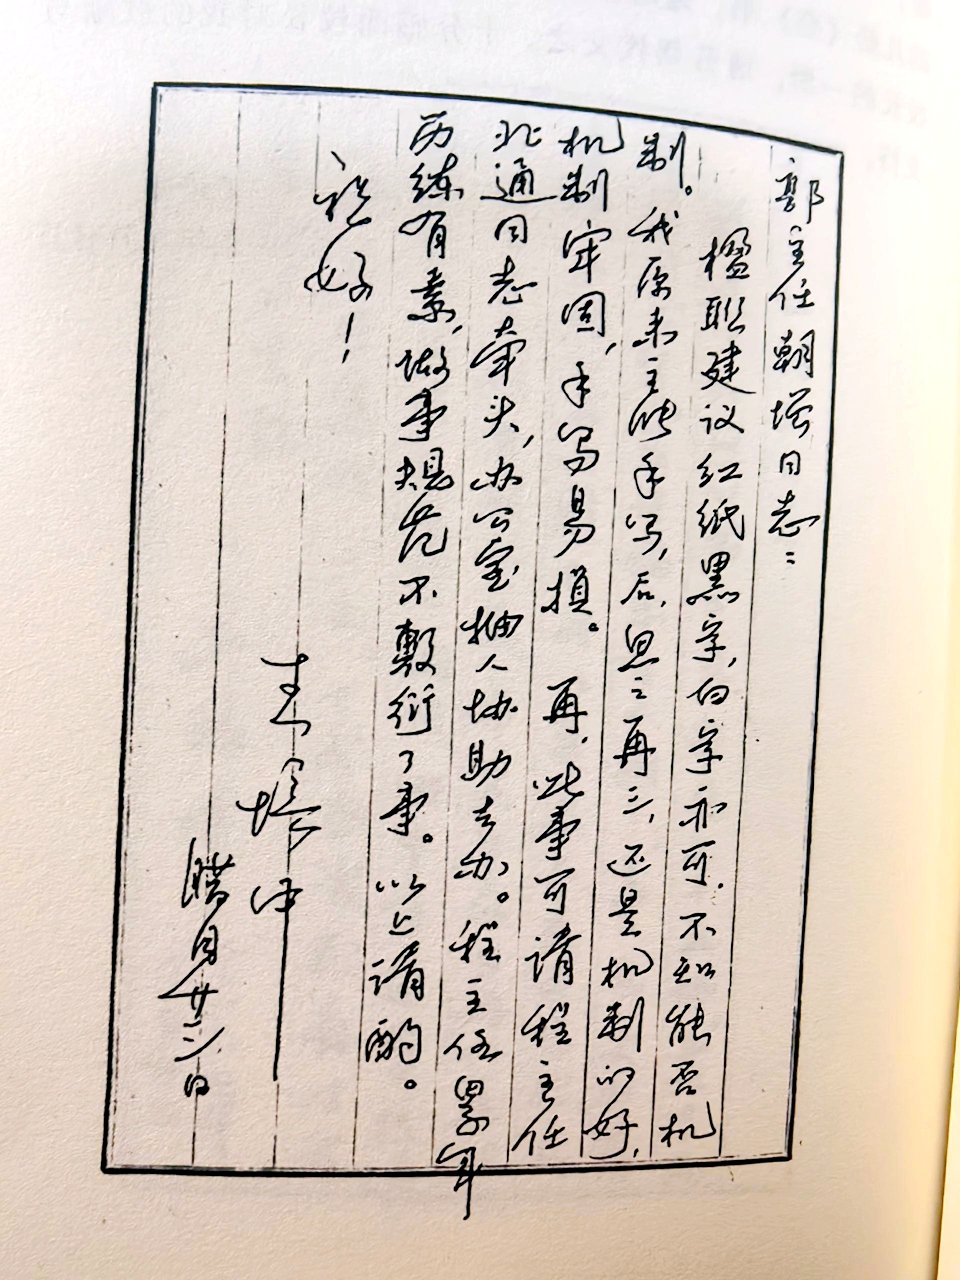 郭主任朝增同志：
楹联建议红纸黑字，白字亦可，不知能否机
制。我原来主张手写，后思之再三，还是机制的好，
机制牢固，手写易损。再，此事可请程主任
北通同志牵头，办公室抽人协助去办。程主任累年
历练有素，做事规范不敷衍了事。以上请酌。
祝好！
腊月廿三日